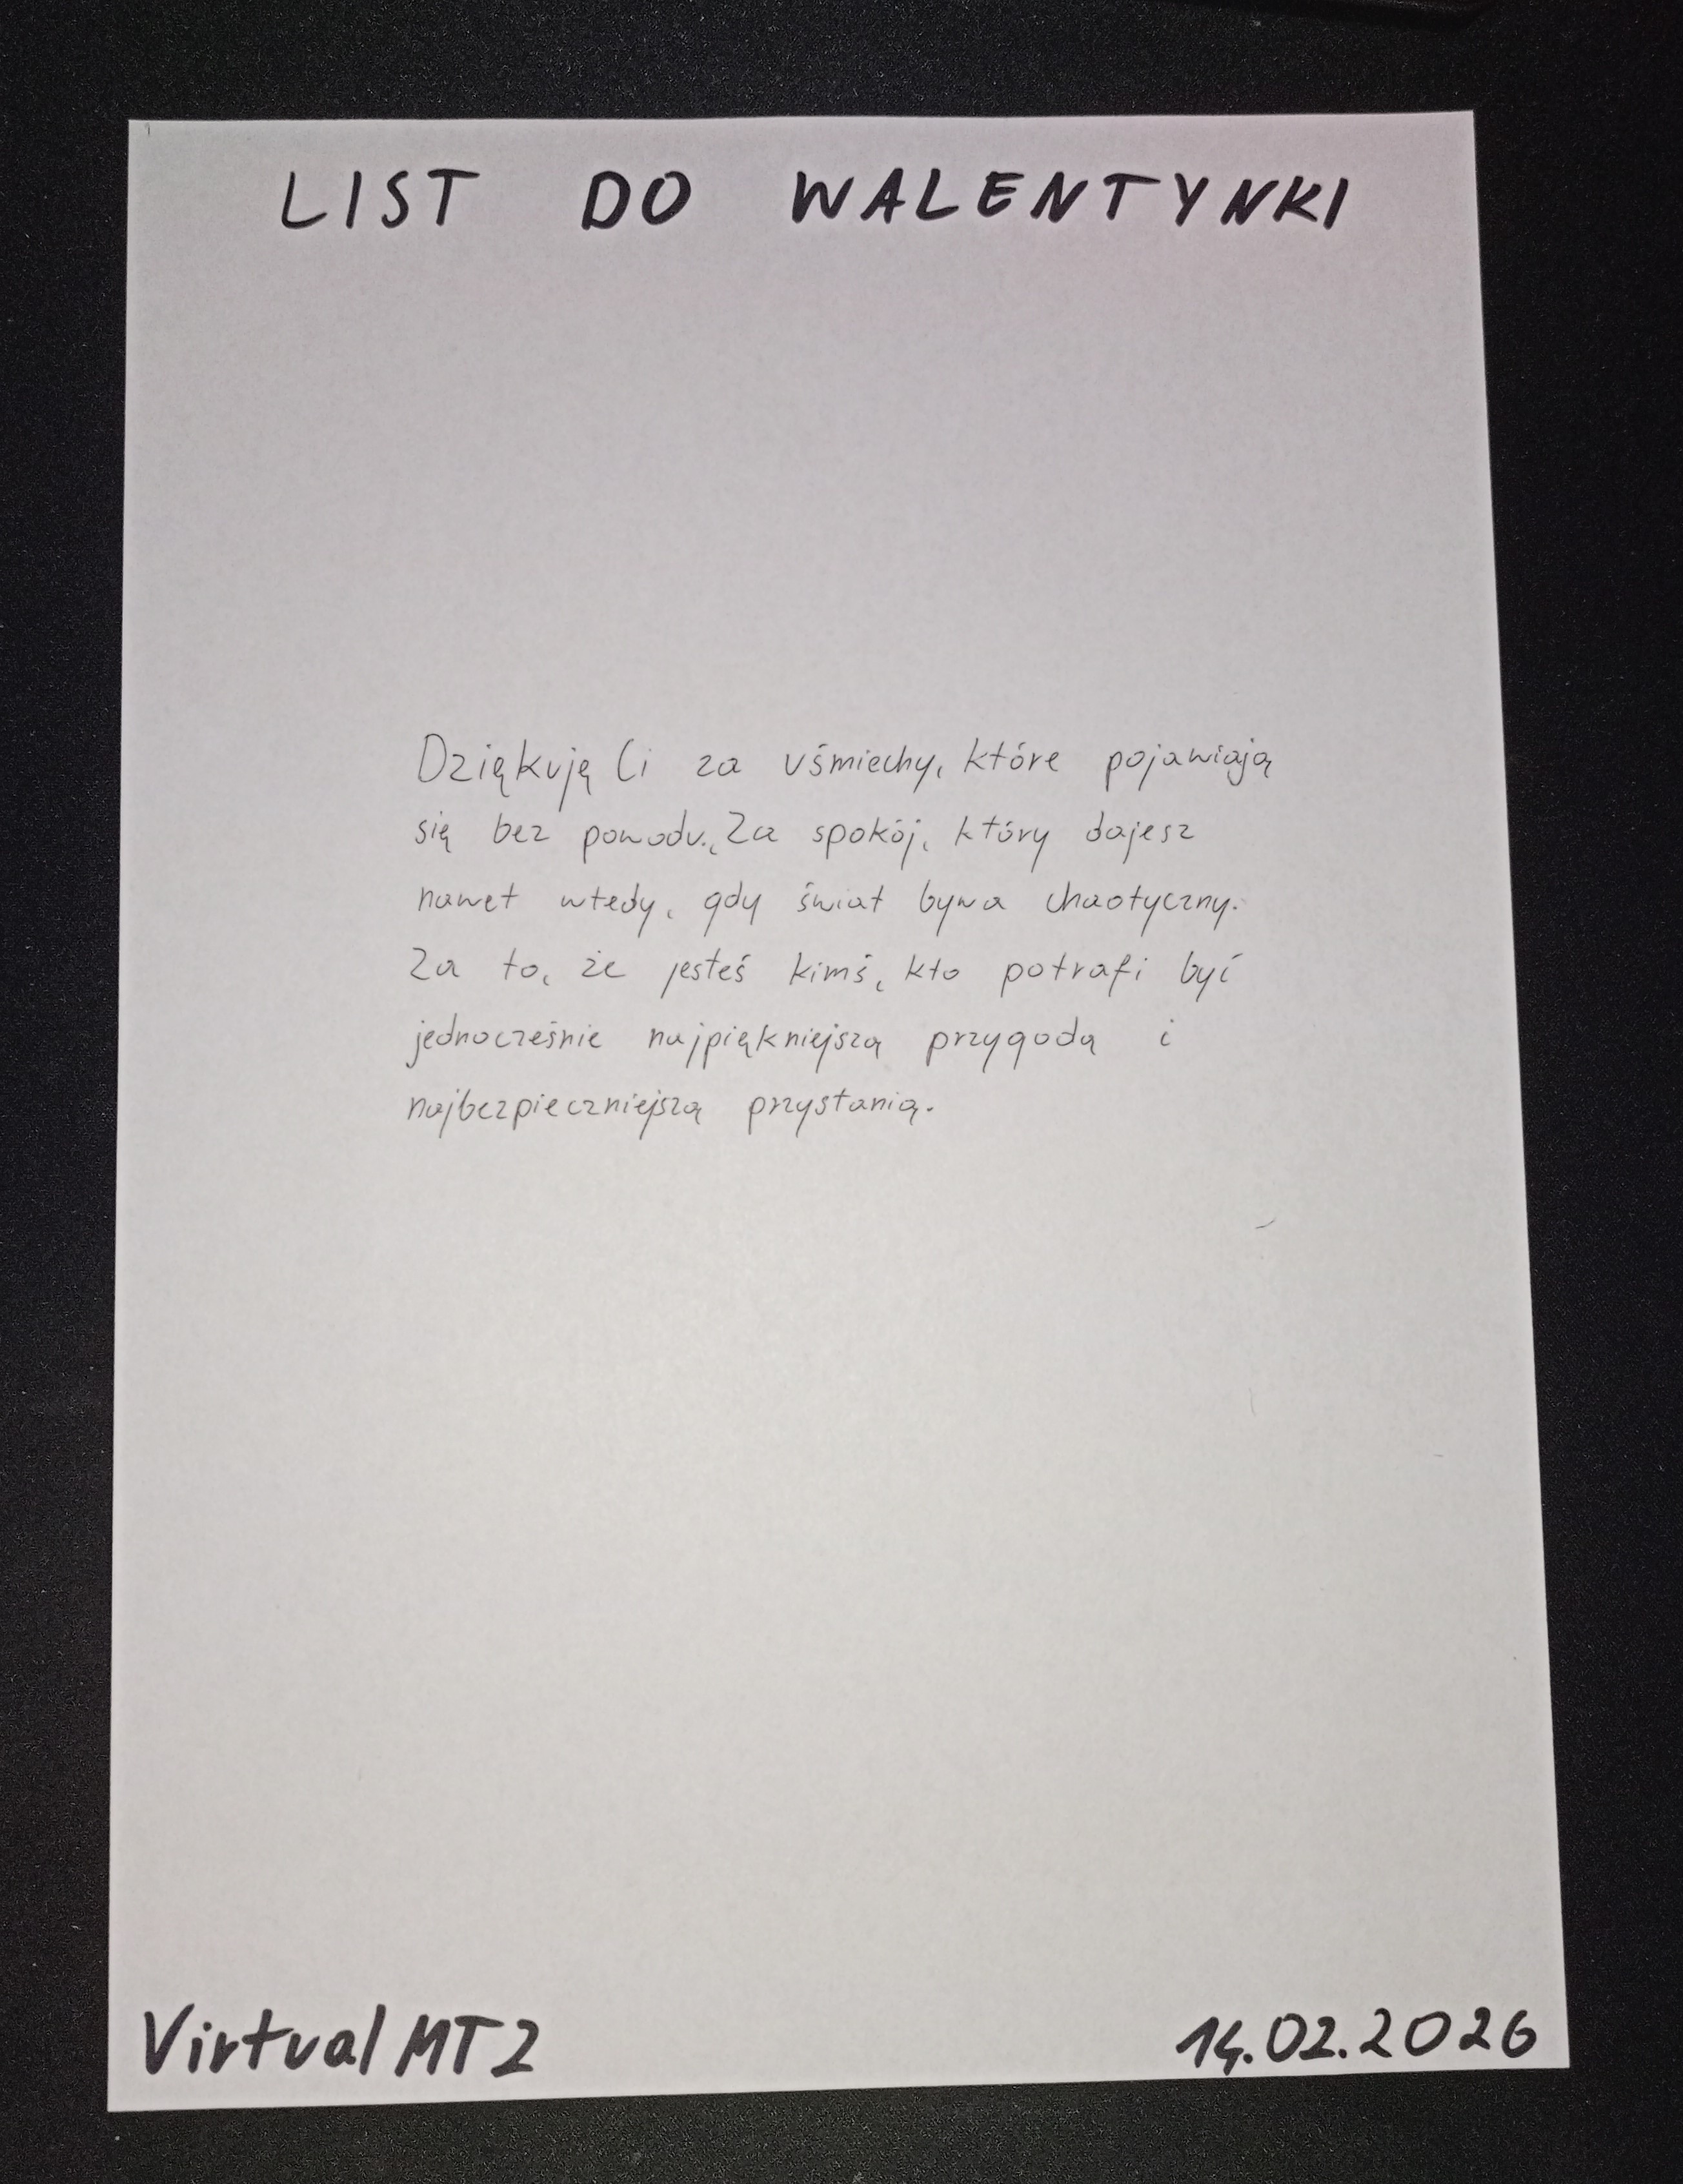 LIST DO WALENTYNKI
Dziękuję Ci za uśmiechy, które pojawiają
się bez powodu., Za spokój, który dajesz
nawet wtedy, gdy świat bywa chaotyczny.
Za to, że jesteś kimś, kto potrafi być
jednocześnie najpiękniejszą przygodą i
najbezpieczniejszą przystanią.
VirtualMT2
14.02.2026